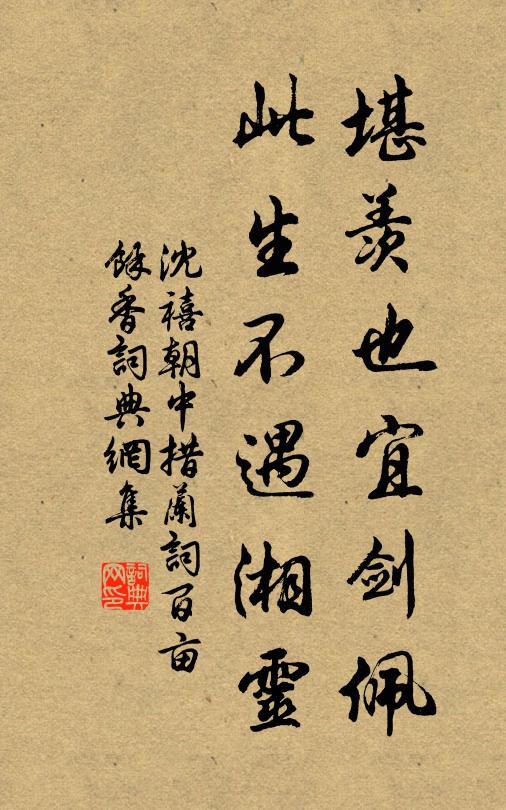 堪羨也宜剑佩
此生不遇湘靈
沈禧朝中措蘭詞百亩
餘香詞典網集
詞典网印